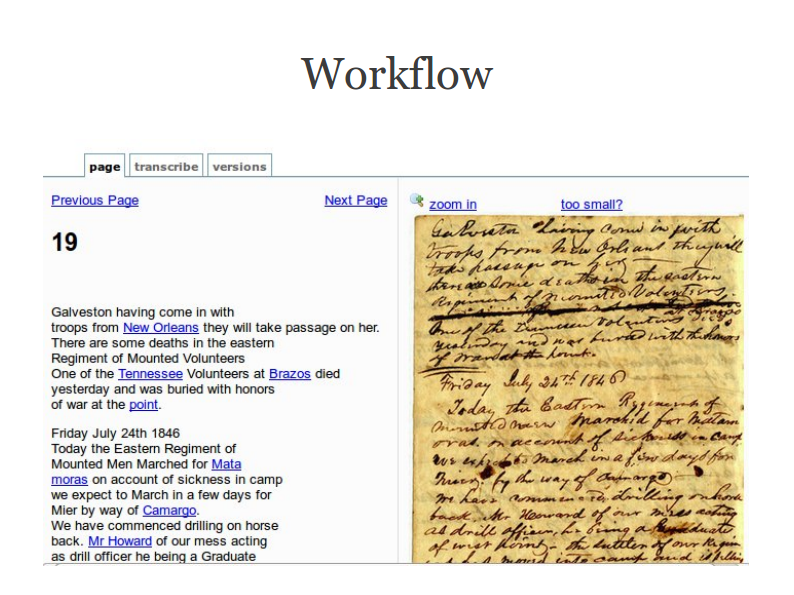 Workflow
page transcribe versions
Previous Page Next Page
19
Galveston having come in with
troops from New Orleans they will take passage on her.
There are some deaths in the eastern
Regiment of Mounted Volunteers
One of the Tennessee Volunteers at Brazos died
yesterday and was buried with honors
of war at the point.
Friday July 24th 1846
Today the Eastern Regiment of
Mounted Men Marched for Mata
moras on account of sickness in camp
we expect to March in a few days for
Mier by way of Camargo.
We have commenced drilling on horse
back. Mr Howard of our mess acting
as drill officer he being a Graduate
zoom in too small?
Galveston having come in with
troops from New Orleans they will
take passage on her
there are some deaths in the eastern
Regiment of Mounted Volunteers
One of the Tennessee Volunteers died
yesterday and was buried with the honors
of war at the point.
Friday July 24th 1846
Today the Eastern Regiment of
mounted men marched for Matam
oras on account of sickness in camp
we expect to march in a few days for
Mier by the way of Camargo
we have commenced drilling on horse
back. Mr. Howard of our mess acting
as drill officer, he being a Graduate
of west point. the sutler of our Regim
moved into camp and is selling